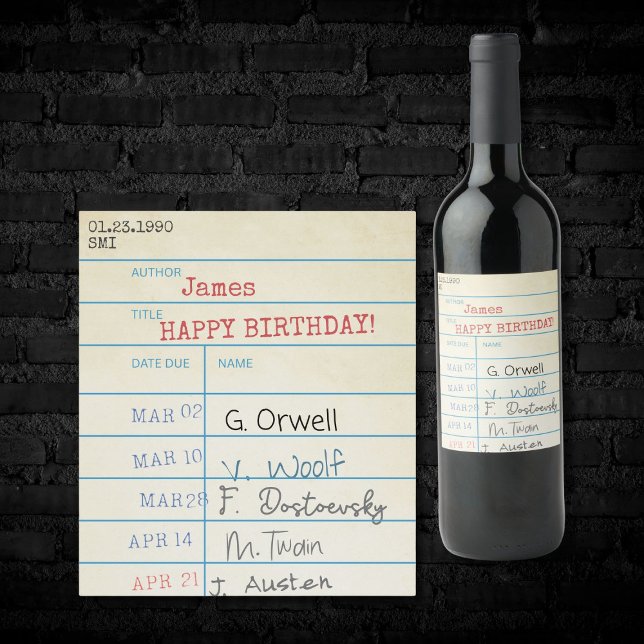 01.23.1990
SMI
AUTHOR
James
TITLE
HAPPY BIRTHDAY!
DATE DUE NAME
MAR 02 G. Orwell
MAR 10 V. Woolf
MAR 28 F. Dostoevsky
APR 14 M. Twain
APR 21 J. Austen
AUTHOR
James
TITLE
HAPPY BIRTHDAY!
DATE DUE NAME
MAR 02 G. Orwell
MAR 10 V. Woolf
MAR 28 F. Dostoevsky
APR 14 M. Twain
APR 21 J. Austen